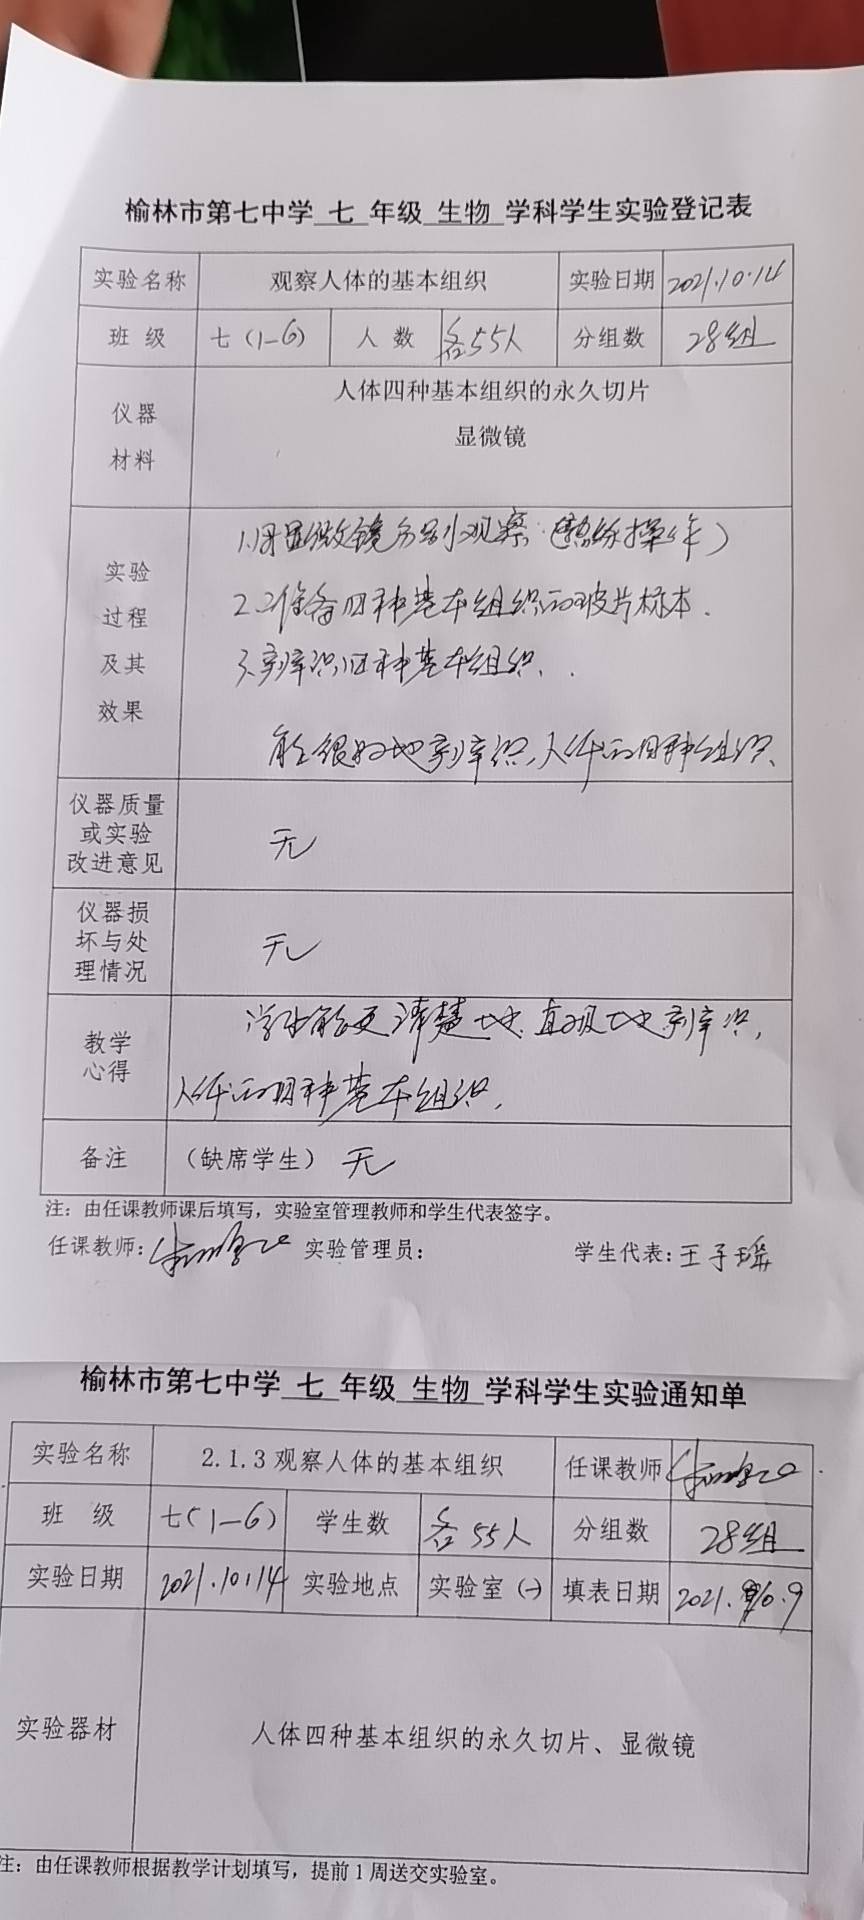 榆林市第七中学 七 年级 生物 学科学生实验登记表
实验名称 观察人体的基本组织 实验日期 2021.10.14
班 级 七（1-6） 人 数 各55人 分组数 28组
仪器材料 人体四种基本组织的永久切片
显微镜
实验过程及其效果 1.用显微镜分别观察（熟练操作）
2.准备四种基本组织的玻片标本.
3.辨识四种基本组织.
能很好地辨识人体的四种组织.
仪器质量或实验改进意见 无
仪器损坏与处理情况 无
教学心得 学生能更清楚地.直观地辨识,
人体的四种基本组织.
备注 （缺席学生） 无
注：由任课教师课后填写，实验室管理教师和学生代表签字。
任课教师： 实验管理员： 学生代表：王子瑶
榆林市第七中学 七 年级 生物 学科学生实验通知单
实验名称 2.1.3 观察人体的基本组织 任课教师
班 级 七（1-6） 学生数 各55人 分组数 28组
实验日期 2021.10.14 实验地点 实验室（一） 填表日期 2021.10.9
实验器材 人体四种基本组织的永久切片、显微镜
注：由任课教师根据教学计划填写，提前1周送交实验室。